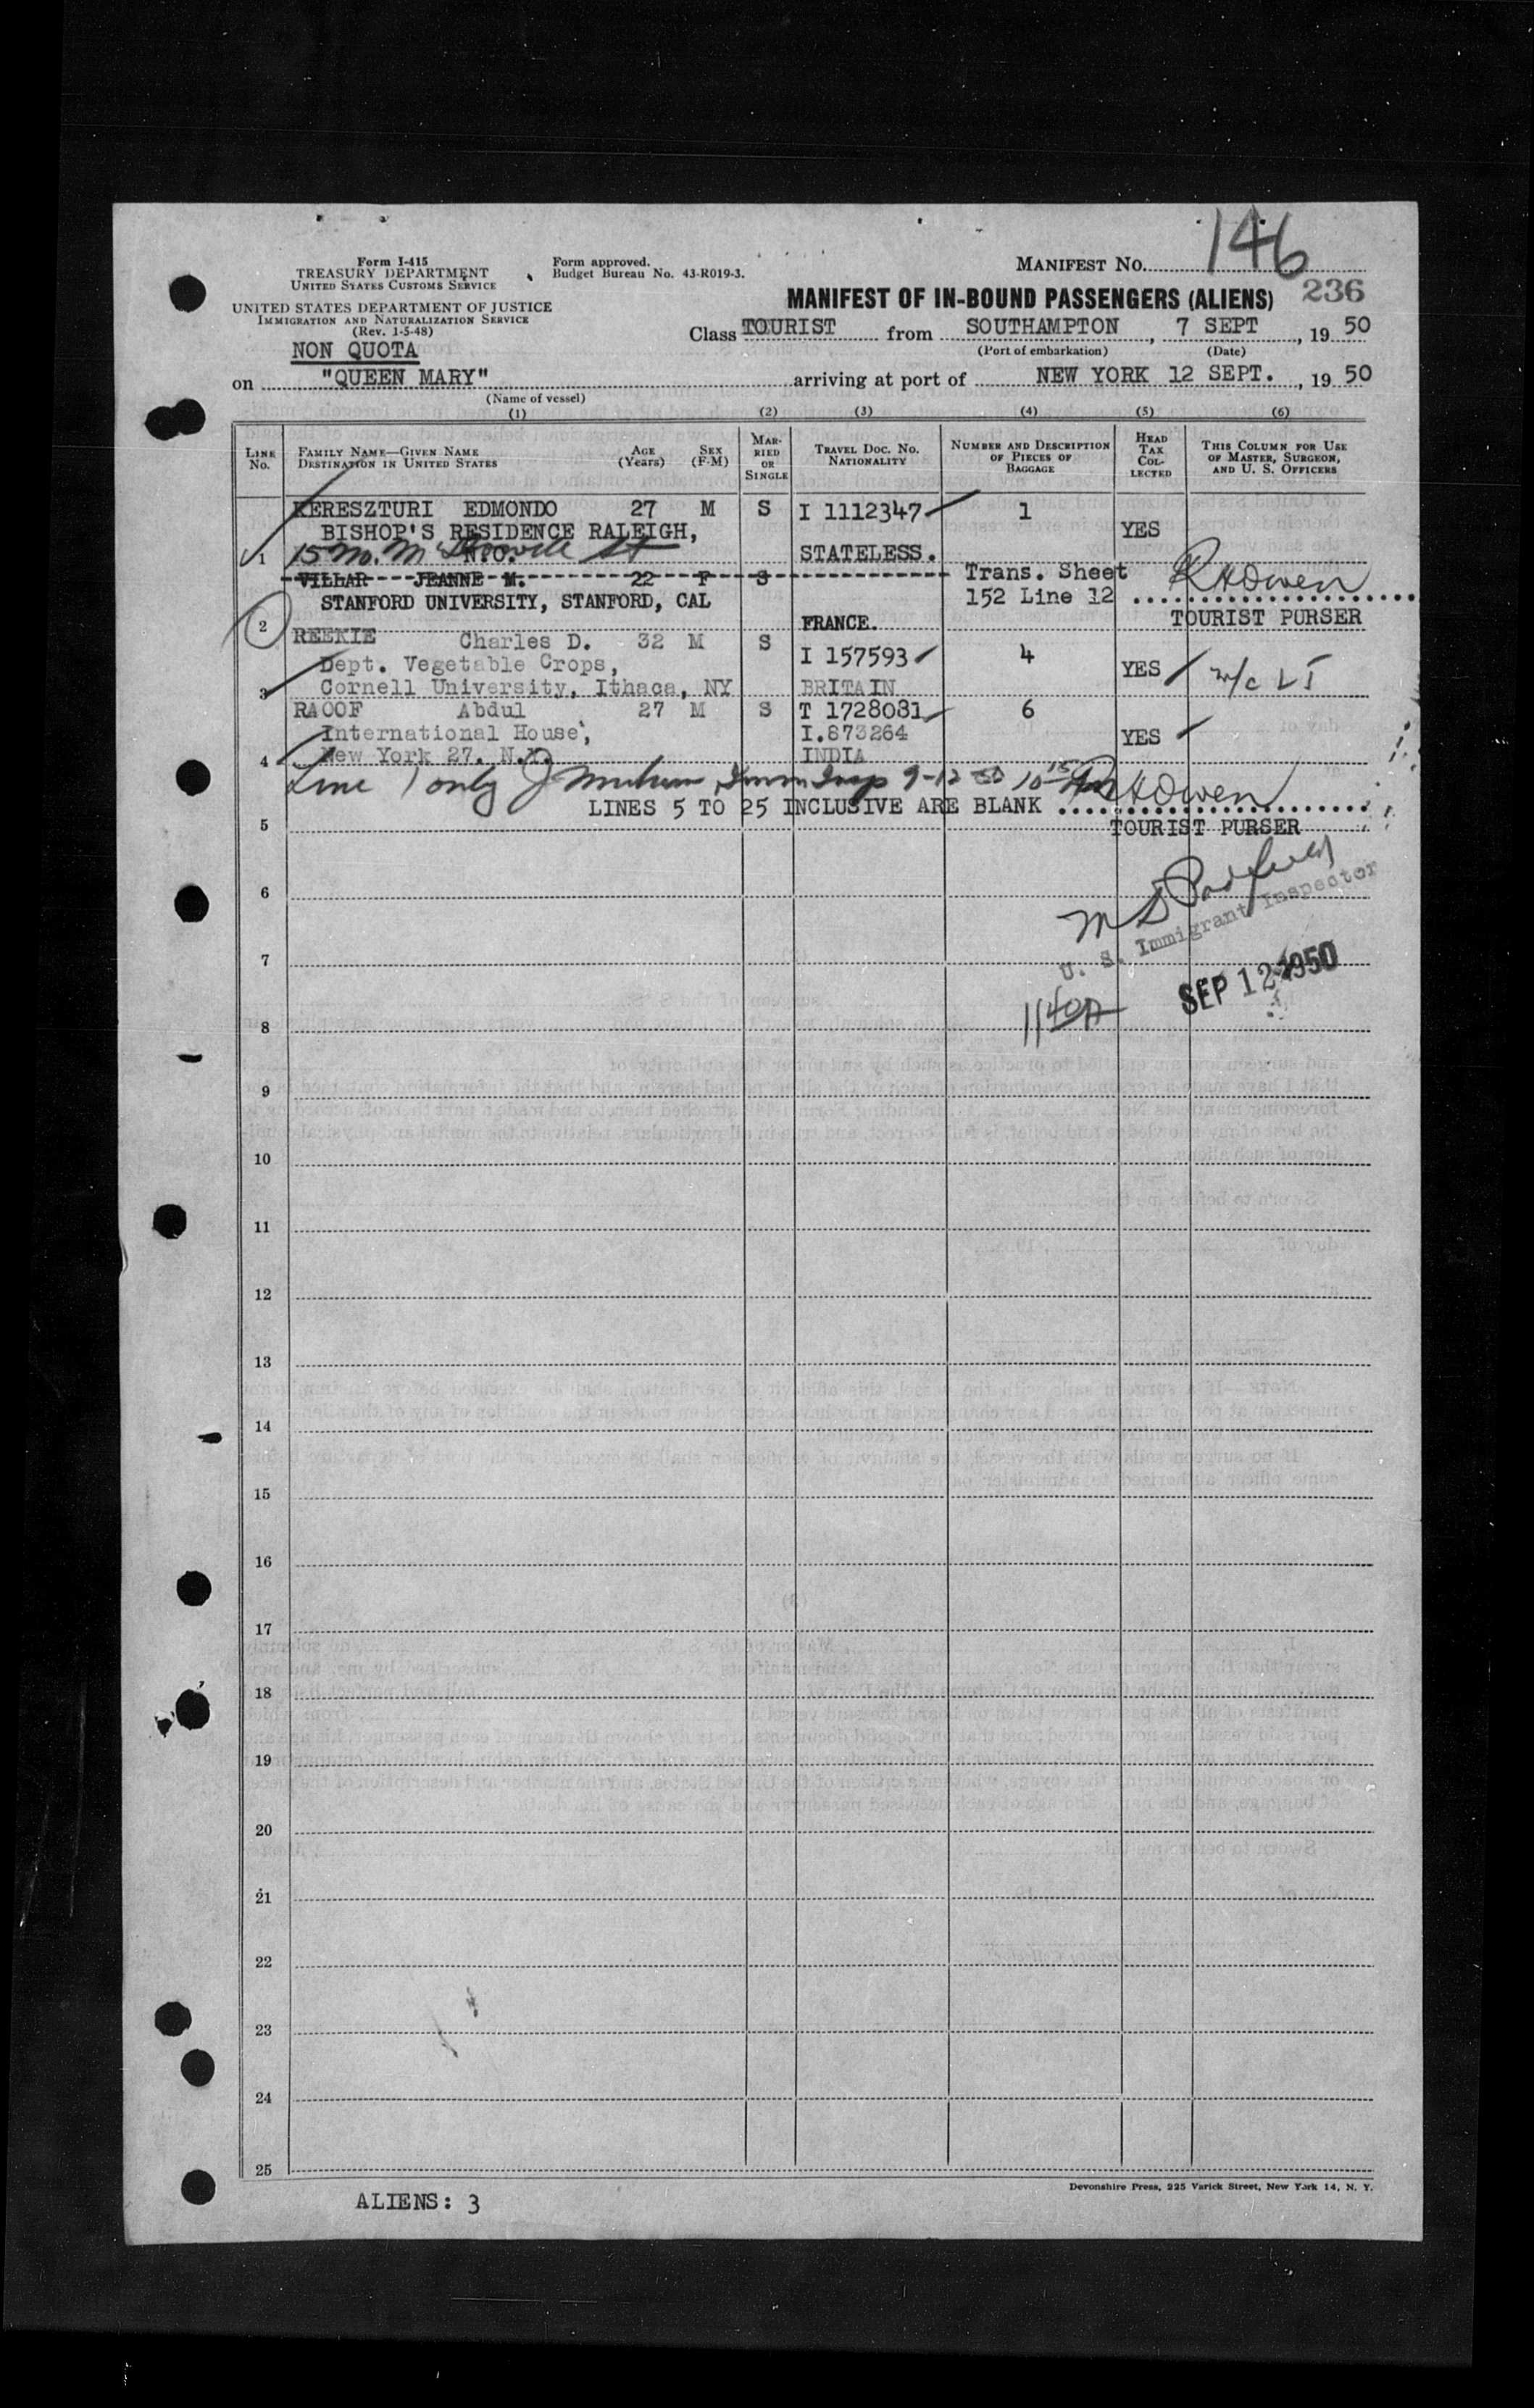 146
Form I-415
TREASURY DEPARTMENT
UNITED STATES CUSTOMS SERVICE
Form approved.
Budget Bureau No. 43-R019-3.
MANIFEST No.
UNITED STATES DEPARTMENT OF JUSTICE
IMMIGRATION AND NATURALIZATION SERVICE
(Rev. 1-5-48)
MANIFEST OF IN-BOUND PASSENGERS (ALIENS) 236
NON QUOTA
Class TOURIST from SOUTHAMPTON, 7 SEPT, 19 50
(Port of embarkation) (Date)
on "QUEEN MARY" arriving at port of NEW YORK 12 SEPT., 19 50
(Name of vessel)
(1) (2) (3) (4) (5) (6)
LINE No.
FAMILY NAME—GIVEN NAME
DESTINATION IN UNITED STATES
AGE (Years)
SEX (F-M)
MARRIED OR SINGLE
TRAVEL DOC. NO.
NATIONALITY
NUMBER AND DESCRIPTION OF PIECES OF BAGGAGE
HEAD TAX COLLECTED
THIS COLUMN FOR USE OF MASTER, SURGEON, AND U. S. OFFICERS
KERESZTURI EDMONDO 27 M S I 1112347 1
BISHOP'S RESIDENCE RALEIGH, YES
1 15 N.C. St STATELESS.
VILLAR JEANNE M. 22 F S Trans. Sheet RHOwen
STANFORD UNIVERSITY, STANFORD, CAL 152 Line 12
2 FRANCE. TOURIST PURSER
REEKIE Charles D. 32 M S
Dept. Vegetable Crops, I 157593 4 YES
3 Cornell University, Ithaca, NY BRITAIN
RAOOF Abdul 27 M S T 1728081 6
International House, I.873264 YES
4 New York 27. N.Y. INDIA
Line 1 only Imm Insp 9-12-50 10 15 AM RHOwen
LINES 5 TO 25 INCLUSIVE ARE BLANK
5 TOURIST PURSER
6
U. S. Immigrant Inspector
7
SEP 12 1950
1140A
8
9
10
11
12
13
14
15
16
17
18
19
20
21
22
23
24
25
Devonshire Press, 225 Varick Street, New York 14, N. Y.
ALIENS: 3